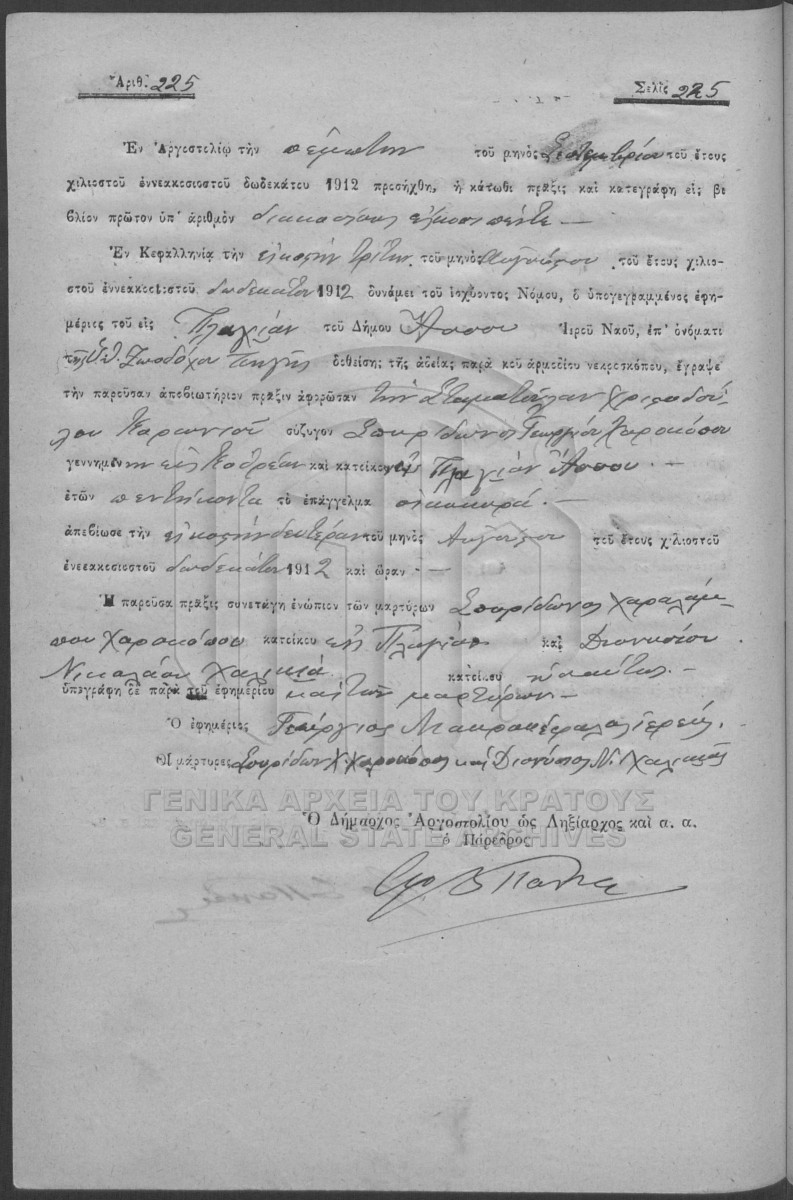 Ἀριθ. 225
Σελὶς 225
Ἐν Ἀργοστολίῳ τὴν πέμπτην τοῦ μηνὸς Σεπτεμβρίου τοῦ ἔτους
χιλιοστοῦ ἐννεακοσιοστοῦ δωδεκάτου 1912 προσήχθη, ἡ κάτωθι πρᾶξις καὶ κατεγράφη εἰς βι
βλίον πρῶτον ὑπ' ἀριθμὸν διακοσίους εἴκοσι πέντε —
Ἐν Κεφαλληνίᾳ τὴν εἰκοστὴν τρίτην τοῦ μηνὸς Αὐγούστου τοῦ ἔτους χιλιο-
στοῦ ἐννεακοσιοστοῦ δωδεκάτου 1912 δυνάμει τοῦ ἰσχύοντος Νόμου, ὁ ὑπογεγραμμένος ἐφη-
μέριος τοῦ εἰς Πλαγιάν τοῦ Δήμου Ἄσσου Ἱεροῦ Ναοῦ, ἐπ' ὀνόματι
τῆς Ζωοδόχου Πηγῆς δοθείσης τῆς ἀδείας παρὰ τοῦ ἁρμοδίου νεκροσκόπου, ἔγραψε
τὴν παροῦσαν ἀποβιωτήριον πρᾶξιν ἀφορῶσαν τὴν Σταματούλαν Χριστοδού-
λου σύζυγον Σπυρίδωνος Γεωργίου Χαροκόπου
γεννημένην εἰς καὶ κατοικον εἰς Πλαγιάν Ἄσσου. —
ἐτῶν πεντήκοντα τὸ ἐπάγγελμα οἰκοκυρά. —
ἀπεβίωσε τὴν εἰκοστὴν δευτέραν τοῦ μηνὸς Αὐγούστου τοῦ ἔτους χιλιοστοῦ
ἐνεεακοσιοστοῦ δωδεκάτου 1912 καὶ ὥραν —
Ἡ παροῦσα πρᾶξις συνετάγη ἐνώπιον τῶν μαρτύρων Σπυρίδωνος Χαραλάμ-
που Χαροκόπου κατοίκου εἰς Πλαγιάν καὶ Διονυσίου
Νικολάου Χαλικιᾶ κατοίκου ὡσαύτως. —
ὑπεγράφη δὲ παρὰ τοῦ ἐφημερίου καὶ τῶν μαρτύρων —
Ὁ ἐφημέριος Γεώργιος Μακροκέφαλος ἱερεύς.
Οἱ μάρτυρες Σπυρίδων Χ. Χαροκόπος καὶ Διονύσιος Ν. Χαλικιᾶς
ΓΕΝΙΚΑ ΑΡΧΕΙΑ ΤΟΥ ΚΡΑΤΟΥΣ
GENERAL STATE ARCHIVES
Ὁ Δήμαρχος Ἀργοστολίου ὡς Ληξίαρχος καὶ α. α.
ὁ Πάρεδρος